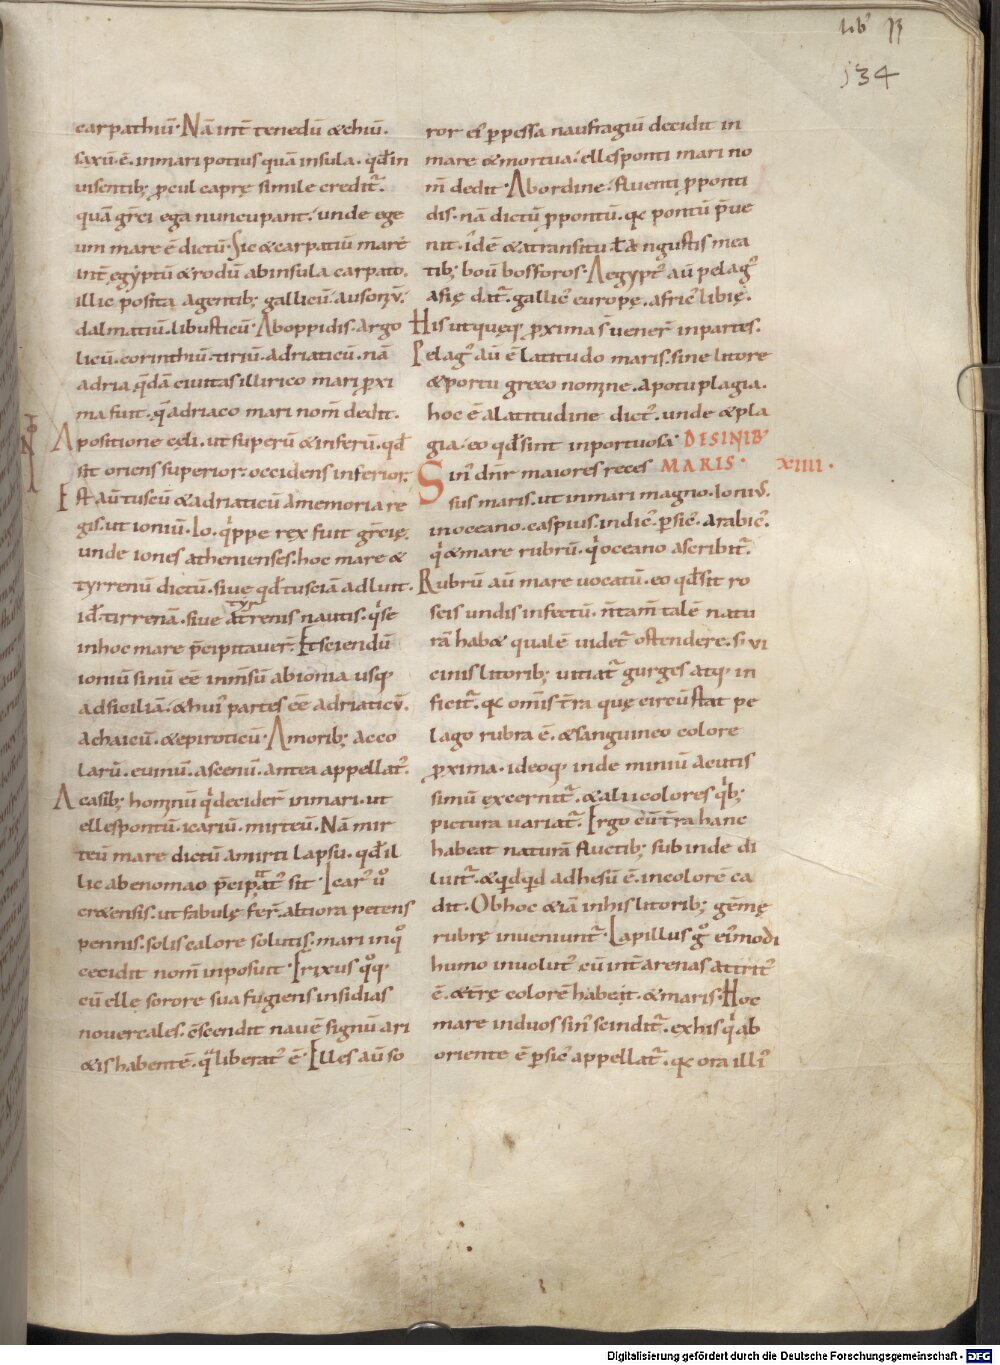 lib' 13
134
carpathiū. Nā int̄ tenedū &chiū.
saxū ē. inmari potius quā insula. qđ in
uisentib; ꝓcul caprę simile creditͬ.
quā gręci ega nuncupant. unde ege
um mare ē dictū. Sic &carpatiū mare
int̄ egyptū &rodū abinsula carpato.
illic posita agentib; gallicū. ausoniū.
dalmatiū. libusticū. Aboppidis. argo
licū. corinthiū. tiriū. adriaticū. nā
adria q̄dā ciuitas illirico mari ꝓxi
ma fuit. q̄ adriaco mari nom̄ dedit.
Apositione cęli. ut superū &inferū. qđ
sit oriens superior. occidens inferior.
Est aū tuscū &adriaticū amemoria re
gis. ut ioniū. Io. qͥppe rex fuit grēcię.
unde iones athenienses. hoc mare &
tyrrenū dictū. siue qđ tusciā adluit.
iđ. tirrenā. siue atyrrenis nautis. qͥ se
inhoc mare p̄cipitauer̄. Et sciendū
ioniū sinū eē inm̄sū abionia usq;
adsiciliā. &hui' partes eē adriaticū.
achaicū. &epiroticū. Amorib; acco
larū. euxinū. ascenū. antea appellat'.
Acasib; hominū qͥ decider̄ inmari. ut
ellespontū. icariū. mirteū. Nā mir
teū mare dictū amirti lapsu. qđ il
lic abenomao p̄cipitat' sit. Icar' ů
cr&ensis. ut fabulę fer̄. altiora petens
pennis. solis calore solutis. mari inqͦ
cecidit nom̄ inposuit. Frixus qͦq;
cū elle sorore sua fugiens insidias
nouercales. c̄scendit nauē signū ari
&is habentē. q̄ liberat' ē. Elles aū so
ror ei' ꝑpessa naufragiū decidit in
mare &mortua. ellesponti mari no
m̄ dedit. Abordine. fluenti ꝓponti
dis. nā dictū ꝓpontū. qc pontū p̄ue
nit. idē &atransitu t̄ &angustis mea
tib; boū bosforos. Aegypt' aū pelag'
asię datͬ. gallic' europę. afric' libię.
His utquęq; ꝓxima s̄ uener̄ inpartes.
Pelag' aū ē latitudo maris. sine litore
&portu greco nomine. apotu plagia.
hoc ē alatitudine dict'. unde &pla
gia. eo qđ sint inportuosa. DE SINIB'
Sin' dn̄r maiores reces MARIS. XIIII.
sus maris. ut inmari magno. Ionius.
inoceano. caspius. indic'. ꝑsic'. arabic'.
qͥ &mare rubrū. qͥ oceano ascribitͬ.
Rubrū aū mare uocatū. eo qđ sit ro
seis undis infectū. n̄ tam̄ talē natu
rā hab& qualē uidetͬ ostendere. s; vi
cinis litorib; uitiatͬ gurges atq; in
ficitͬ. qc omīs t̄ra quę circūstat pe
lago rubra ē. &sanguineo colore
ꝓxima. ideoq; inde miniū acutis
simū excernitͬ. &alii colores qͥb;
pictura uariatͬ. Ergo cū t̄ra hanc
habeat naturā fluctib; subinde di
luitͬ. &qͥdqͥd adhesū ē. incolorē ca
dit. Ob hoc &iā inhis litorib; gēmę
rubrę inueniuntͬ. Lapillus gͦ ei' modi
humo inuolut' cū int̄ arenas attrit'
ē. &t̄rę colorē habeit. &maris. Hoc
mare induos sin' scinditͬ. exhis qͥ ab
oriente ē ꝑsic' appellatͬ. qc ora illi'
Digitalisierung gefördert durch die Deutsche Forschungsgemeinschaft - DFG